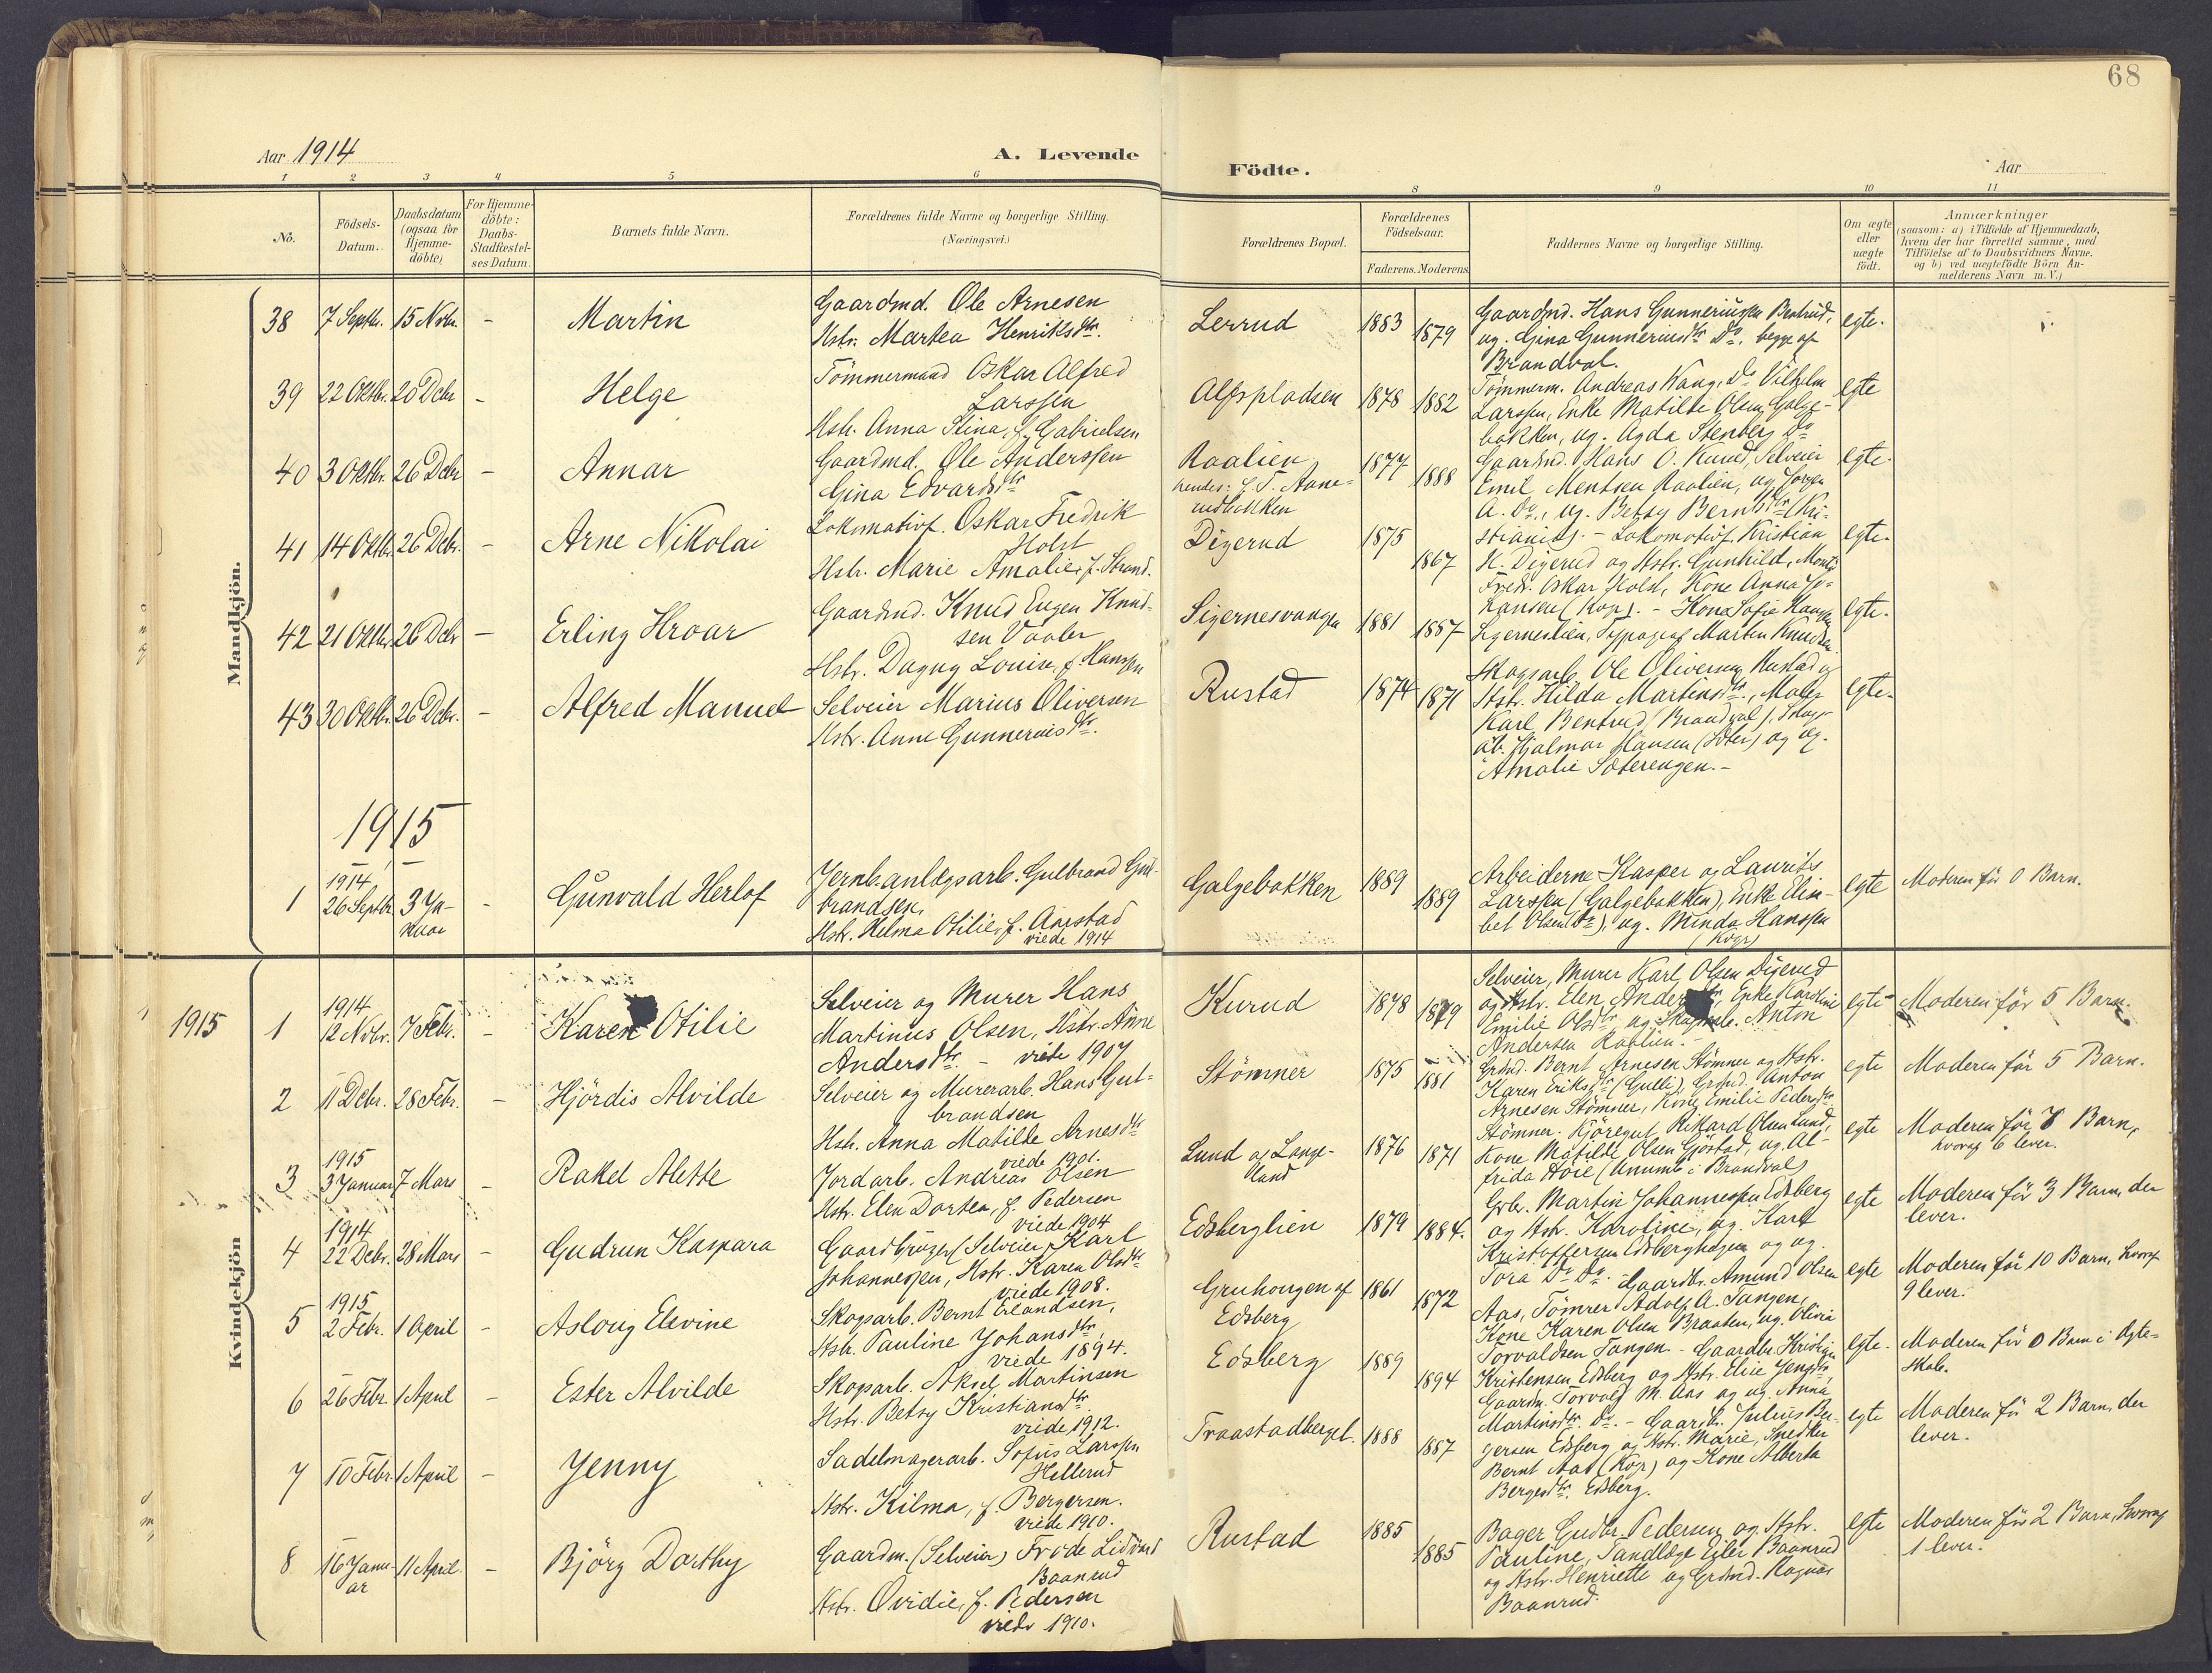 68
Aar 1914
A. Levende
Födte.
Aar
1 2 3 4 5 6 8 9 10 11
No.
Födsels-
Datum.
Daabsdatum
(ogsaa for
Hjemme-
döbte)
For Hjemme-
döbte:
Daabs-
Stadfæstel-
ses Datum.
Barnets fulde Navn.
Forældrenes fulde Navne og borgerlige Stilling.
(Næringsvei.)
Forældrenes Bopæl.
Forældrenes
Födselsaar.
Faderens. Moderens
Faddernes Navne og borgerlige Stilling.
Om ægte
eller
uægte
födt.
Anmærkninger
(saasom: a) i Tilfælde af Hjemmedaab,
hvem der har forrettet samme, med
Tilföielse af to Daabsvidners Navne.
og b) ved uægtefödte Börn An-
melderens Navn m.V.)
Mandkjön.
38 7 Septbr. 15 Novbr. - Martin
Gaardmd. Ole Arnesen
Hstr. Martea Henriksdtr.
Lerrud 1883 1879
Gaardmd. Hans Gunneriussen Bentrud,
ug. Gina Gunneriusdtr. Do. begge af
Brandval.
egte.
39 22 Oktbr. 20 Debr - Helge
Tömmermand Oskar Alfred
Larssen
Hstr. Anna Stina, f. Gabrielsen
Alfspladsen 1878 1882
Tömmerm. Andreas Wang, Do Vilhelm
Larssen, Enke Matilde Olsen, Galge-
bakken, ug. Agda Stenberg Do
egte
40 3 Oktbr. 26 Debr - Annar
Gaardmd. Ole Anderssen
Gina Edvardsdtr
Raalien 1877 1888
Gaardmd. Hans O. Kurud, Selveier
Emil Mentsen Raalien, ug. Jörgen
A. Do., ug. Betsy Berntsdtr. (Kri-
stiania).
egte.
41 14 Oktbr. 26 Debr. - Arne Nikolai
Lokomotivf. Oskar Fredrik
Holst
Hstr. Marie Amalie, f. Strand.
Digerud 1875 1867
- Lokomotivf. Kristian
K. Digerud og Hstr. Gunhild,
Fredr. Oskar Holst, Kone Anna Jo-
hansen (Kop.).
egte.
42 21 Oktbr. 26 Debr - Erling Hroar
Gaardmd. Knud Eugen Knud-
sen Vaaler
Hstr. Dagny Louise, f. Hanssen
Sigernesvangen 1881 1887
- Kone Sofie Haugen
Sigerneslien, Typograf Martin Knudsen
egte.
43 30 Oktbr. 26 Debr. - Alfred Manuel
Selveier Marius Oliversen
Hstr. Anne Gunneriusdtr.
Rustad 1874 1871
Skogsarb. Ole Oliversen, Rustad og
Hstr. Hilda Martinsdtr., Maler
Karl Bentrud (Brandval), Skogs-
arb. Hjalmar Hansen (Sæter) og ug.
Amalie Sæterengen.-
egte.
1915
1 1914
26 Septbr 3 Ja-
nuar - Gunvald Herlof
Jernb.anlægsarb. Gulbrand Gul-
brandsen,
Hstr. Helma Otilie, f. Aarstad
viede 1914
Galgebakken 1889 1889
Arbeiderne Kasper og Laurits
Larssen (Galgebakken), Enke Elisa-
bet Olsen (Do), ug. Minda Hanssen
(Kogr)
egte Moderen för 0 Barn.
Kvindekjön
1915
1 1914
12 Novbr. 7 Febr. - Karen Otilie
Selveier og Murer Hans
Martinius Olsen, Hstr. Anne
Andersdtr. - viede 1907
Kurud 1878 1879
Selveier, Murer Karl Olsen Digerud
og Hstr. Elen Andersdtr, Enke Karoline
Emilie Olsdtr og Skogsarb. Anton
Andersen Raalien.-
egte Moderen för 5 Barn.
2 11 Debr. 28 Febr. - Hjördis Alvilde
Selveier og Murerarb. Hans Gul-
brandsen
Hstr. Anna Matilde Arnesdtr
viede 1901.
Stömner 1875 1881
Grdmd. Bernt Arnesen Stömner og Hstr.
Karen Eriksdtr (Gulli), Grdmd. Anton
Arnesen Stömner, Kone Emilie Pedersdtr
Stömner.
egte Moderen för 5 Barn.
3 1915
3 Januar 7 Mars - Rakel Alette
Jordarb. Andreas Olsen
Hstr. Elen Dortea, f. Pedersen
viede 1904
Lund og Lange-
land 1876 1871
Kjöregut Rikard Olsen Lund,
Kone Matilde Olsen Gjöstad, ug. Al-
frida Höie (Anumb i Brandval)
egte Moderen för 7 Barn,
hvoraf 6 lever.
4 1914
22 Debr. 28 Mars - Gudrun Kaspara
Gaardbruger (Selveier) Karl
Johannessen, Hstr. Karen Olsdtr
viede 1908.
Edsberglien 1879 1884.
Grbr. Martin Johannessen Edsberg
og Hstr. Karoline, ug. Karl
Kristoffersen Edsberghagen og ug.
Tora Do Do.
egte Moderen för 3 Barn, der
lever.
5 1915
2 Febr. 1 April - Aslaug Elevine
Skogsarb. Bernt Erlandsen,
Hstr. Pauline Johansdtr,
viede 1894.
Gruhaugen af
Edsberg 1861 1872
Gaardbr. Amund Olsen
Aas, Tömrer Adolf A. Tangen,
Kone Karen Olsen Braaten, ug. Olivia
Torvaldsen Tangen
egte Moderen för 10 Barn, hvoraf
9 lever.
6 26 Febr. 1 April - Ester Alvilde
Skogsarb. Aksel Martinsen
Hstr. Betsy Kristiansdtr.
viede 1912.
Edsberg 1889 1894
- Gaardbr. Kristian
Kristensen Edsberg og Hstr. Elise Jensdtr,
Gaardm. Torvald M. Aas og ug. Anna
Martinsdtr. Do.
egte. Moderen för 0 Barn i Ægte-
skab.
7 10 Febr. 1 April - Jenny
Sadelmagerarb. Sofus Larssen
Hellerud
Hstr. Kilma, f. Bergersen.
viede 1910.
Traastadberget. 1888 1887
- Gaardb. Julius Ber-
gersen Edsberg og Hstr. Marie, Snedker
Bernt Aas (Kogr) og Kone Alberta
Bergersdtr. Edsberg.
egte Moderen för 2 Barn, der
lever.
8 16 Janu-
ar 11 April - Björg Dorthy
Gaardm. (Selveier) Frode Lidvard
Baanrud
Hstr. Ovidie, f. Pedersen
viede 1910.
Rustad 1885 1885
Bager Gudbr. Pedersen og Hstr.
Pauline, Tandlæge Eiler Baanrud
og Hstr. Henriette og Grdmd. Ragnar
Baanrud.
egte Moderen för 2 Barn, hvoraf
1 lever.